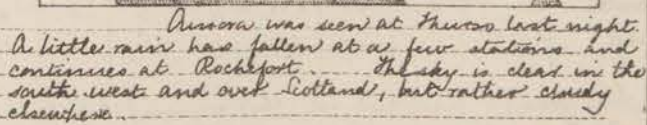 Aurora was seen at Thurso last night.
A little rain has fallen at a few stations and
continues at Rochefort. The sky is clear in the
south west and over Scotland, but rather cloudy
elsewhere.